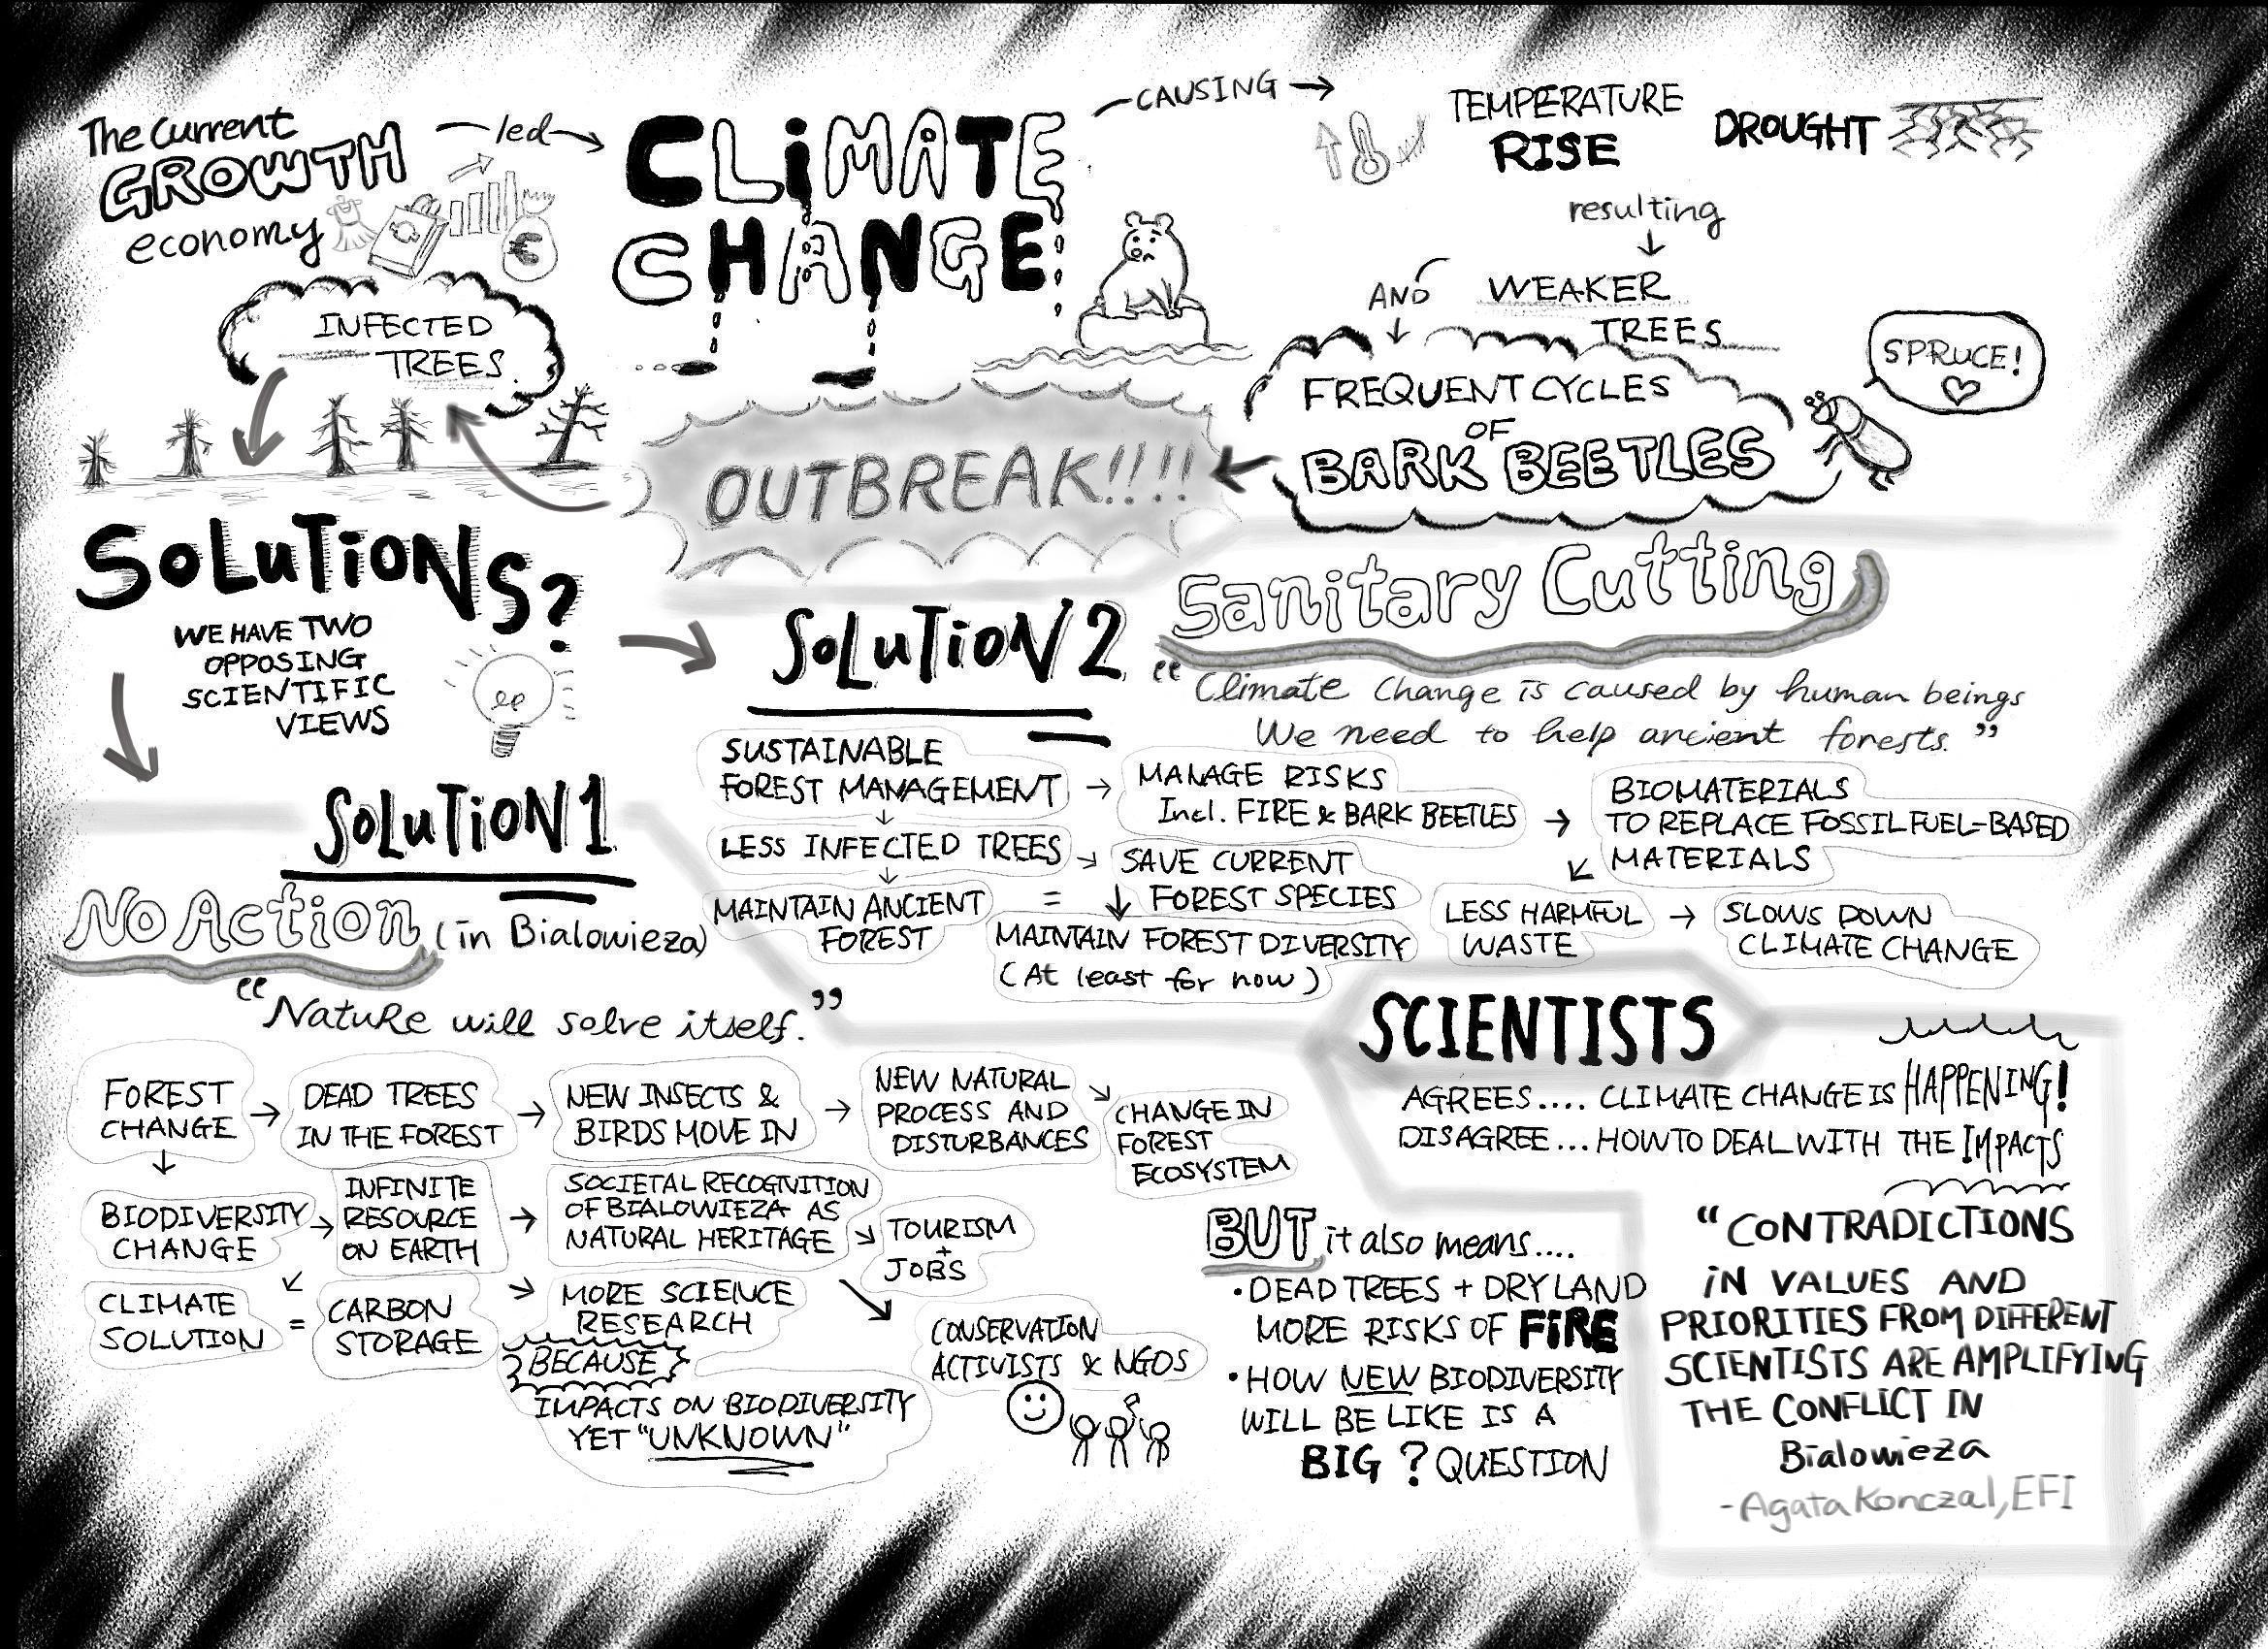 The current
GROWTH
economy
led
CLIMATE
CHANGE
CAUSING
TEMPERATURE
RISE
DROUGHT
resulting
WEAKER
TREES
AND
FREQUENT CYCLES
OF
BARK BEETLES
SPRUCE!
OUTBREAK!!!!
INFECTED
TREES
€
SOLUTIONS?
WE HAVE TWO
OPPOSING
SCIENTIFIC
VIEWS
SOLUTION 1
No Action (in Bialowieza)
"Nature will solve itself."
FOREST
CHANGE
DEAD TREES
IN THE FOREST
NEW INSECTS &
BIRDS MOVE IN
NEW NATURAL
PROCESS AND
DISTURBANCES
CHANGE IN
FOREST
ECOSYSTEM
BIODIVERSITY
CHANGE
INFINITE
RESOURCE
ON EARTH
SOCIETAL RECOGNITION
OF BIALOWIEZA AS
NATURAL HERITAGE
TOURISM
+
JOBS
CLIMATE
SOLUTION
=
CARBON
STORAGE
MORE SCIENCE
RESEARCH
BECAUSE
IMPACTS ON BIODIVERSITY
YET "UNKNOWN"
CONSERVATION
ACTIVISTS & NGOS
SOLUTION 2
Sanitary Cutting
"Climate Change is caused by human beings
We need to help ancient forests."
SUSTAINABLE
FOREST MANAGEMENT
MANAGE RISKS
Incl. FIRE & BARK BEETLES
BIOMATERIALS
TO REPLACE FOSSIL FUEL-BASED
MATERIALS
LESS INFECTED TREES
SAVE CURRENT
FOREST SPECIES
MAINTAIN ANCIENT
FOREST
=
MAINTAIN FOREST DIVERSITY
(At least for now)
LESS HARMFUL
WASTE
SLOWS DOWN
CLIMATE CHANGE
SCIENTISTS
AGREES.... CLIMATE CHANGE IS HAPPENING!
DISAGREE... HOW TO DEAL WITH THE IMPACTS
BUT it also means....
• DEAD TREES + DRY LAND
MORE RISKS OF FIRE
• HOW NEW BIODIVERSITY
WILL BE LIKE IS A
BIG ? QUESTION
"CONTRADICTIONS
IN VALUES AND
PRIORITIES FROM DIFFERENT
SCIENTISTS ARE AMPLIFYING
THE CONFLICT IN
Bialowieza
- Agata Konczal, EFI